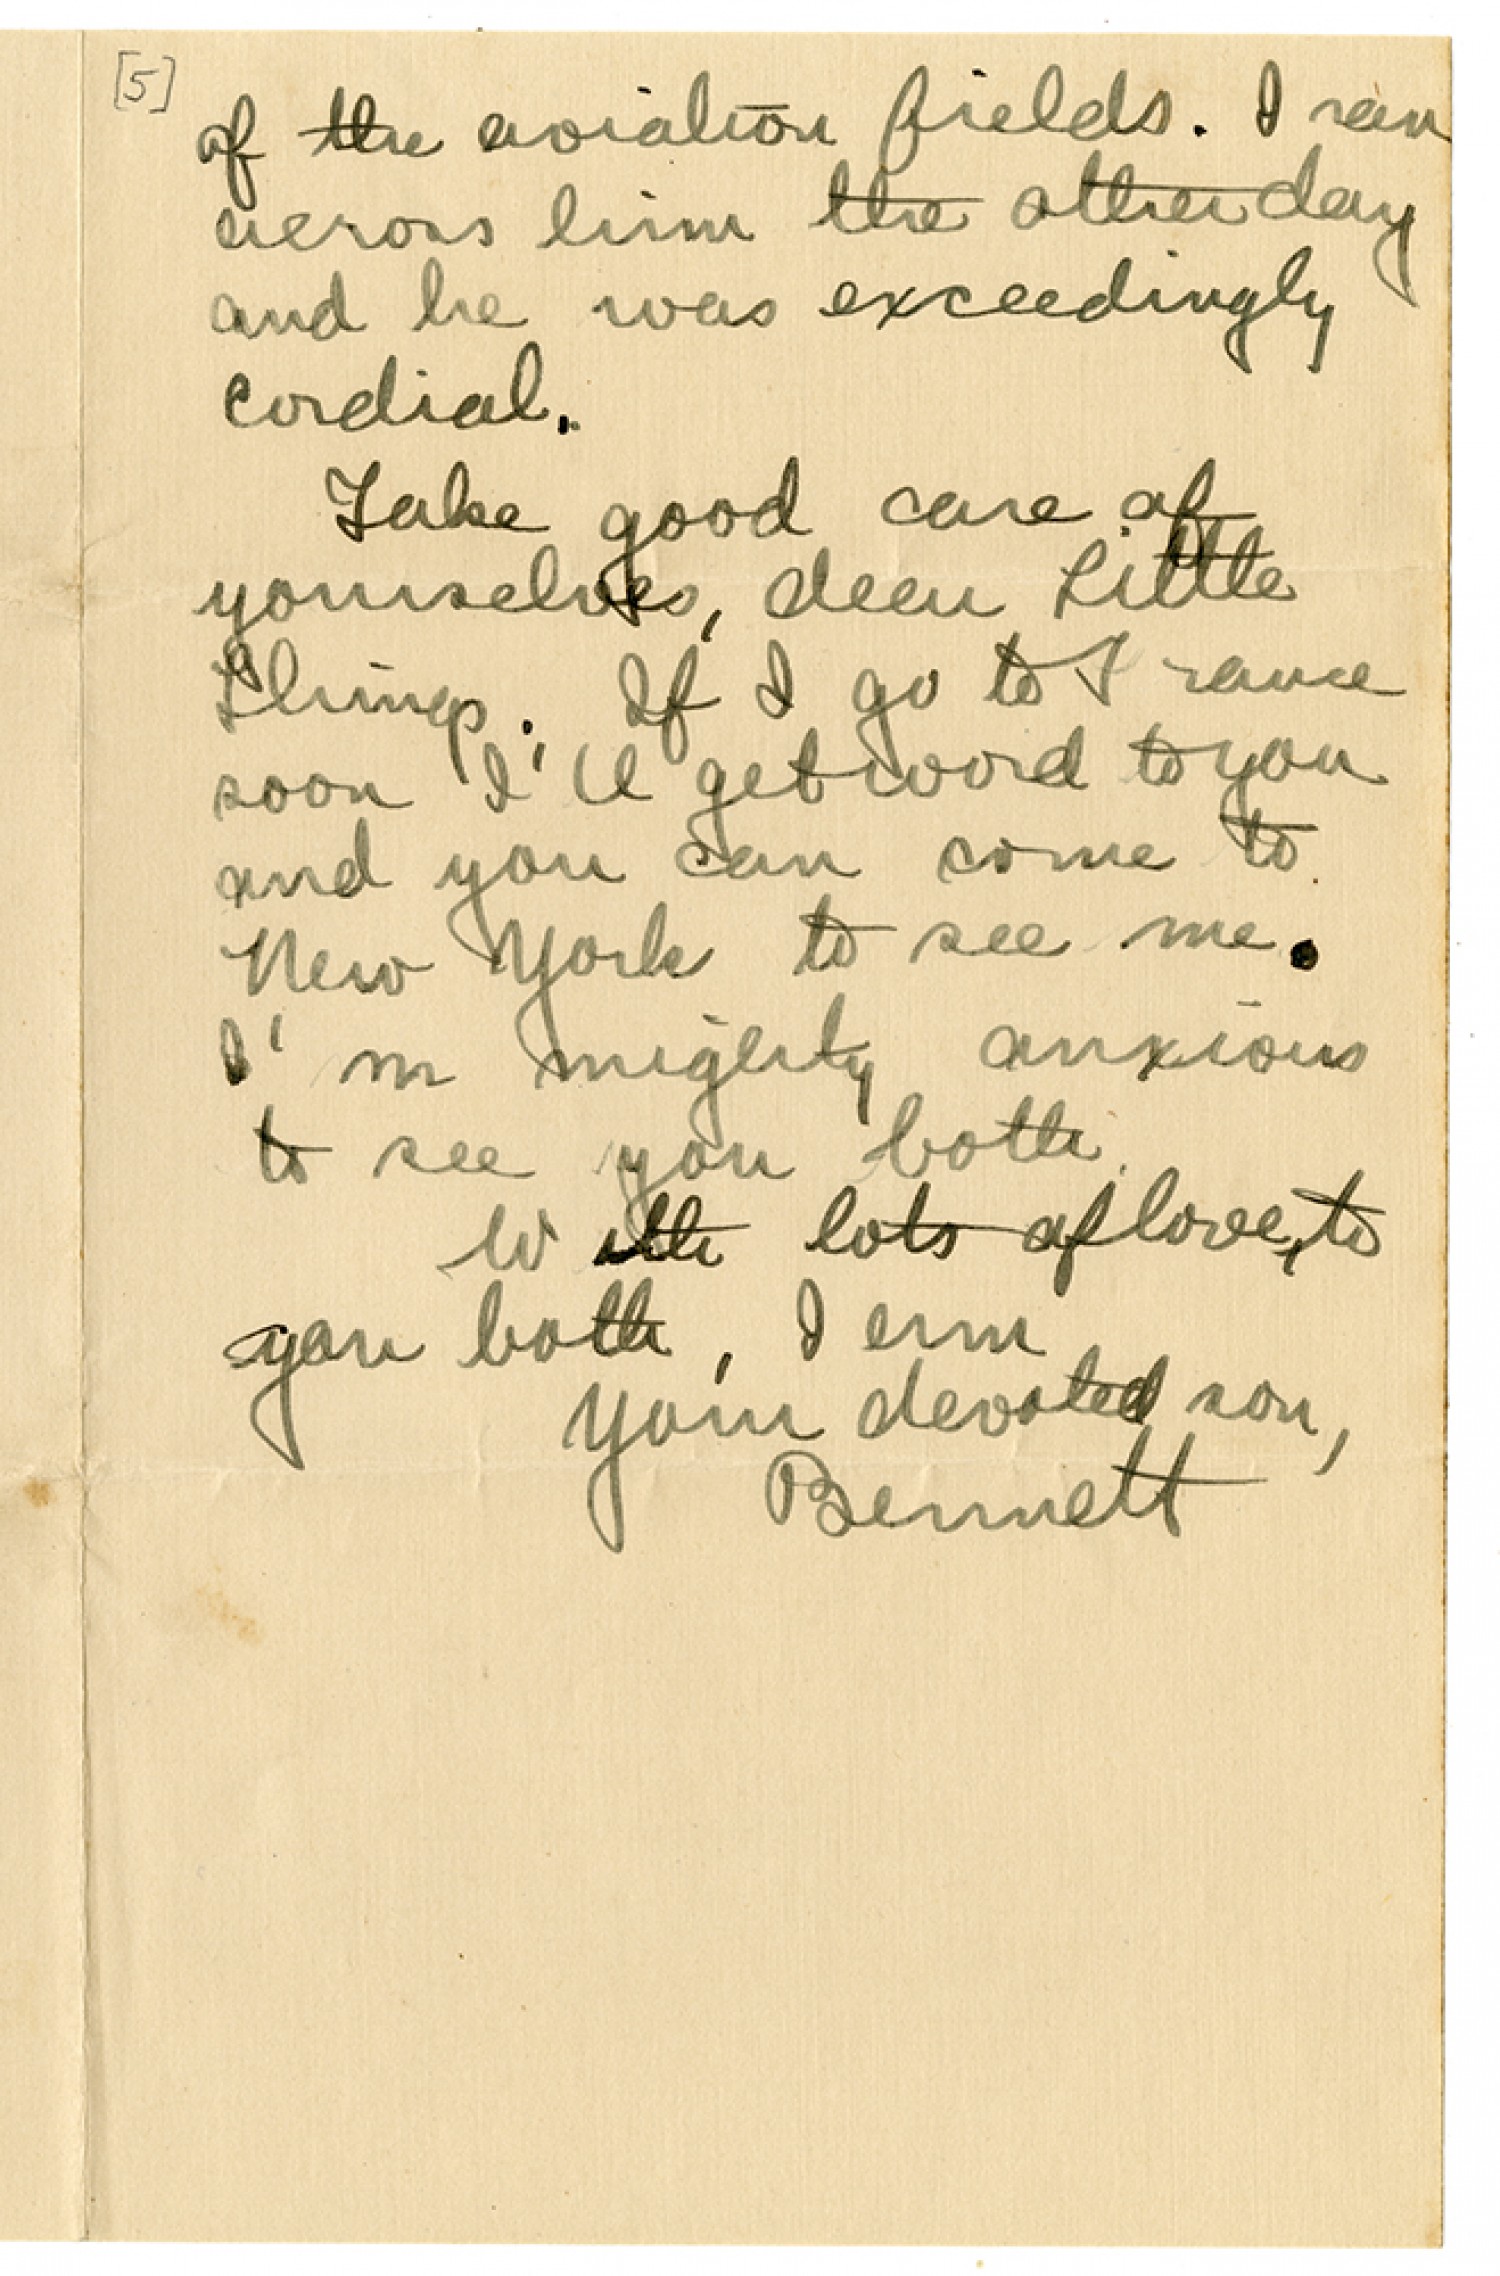 [5]
of the aviation fields. I ran
across him the other day
and he was exceedingly
cordial.
Take good care of
yourselves, dear Little
Things. If I go to France
soon I'll get word to you
and you can come to
New York to see me.
I'm mighty anxious
to see you both.
With lots of love, to
you both, I am
Your devoted son,
Bennett